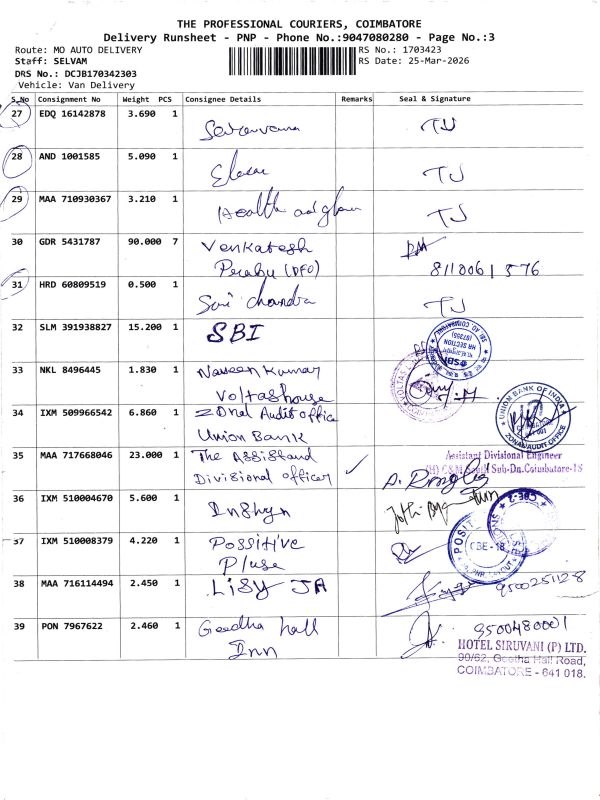 THE PROFESSIONAL COURIERS, COIMBATORE
Delivery Runsheet - PNP - Phone No.:9047080280 - Page No.:3
Route: MO AUTO DELIVERY
RS No.: 1703423
Staff: SELVAM
RS Date: 25-Mar-2026
DRS No.: DCJB170342303
Vehicle: Van Delivery
S.No Consignment No Weight PCS Consignee Details Remarks Seal & Signature
27 EDQ 16142878 3.690 1 TJ
28 AND 1001585 5.090 1 TJ
29 MAA 710930367 3.210 1 Health TJ
30 GDR 5431787 90.000 7 Venkatesh
Prabu (DFO) 8110061576
31 HRD 60809519 0.500 1 Sri Chandra TJ
32 SLM 391938827 15.200 1 SBI
HR SECTION
SBI
33 NKL 8496445 1.830 1 Naveen Kumar
Voltas house
34 IXM 509966542 6.860 1 Zonal Audit office
Union Bank
UNION BANK OF INDIA
ZONAL AUDIT OFFICE
35 MAA 717668046 23.000 1 The Assistand
Divisional officer
Assistant Divisional Engineer
Sub-Dn.Coimbatore-18
36 IXM 510004670 5.600 1
CBE-2
37 IXM 510008379 4.220 1 Possitive
Pluse
CBE-18
38 MAA 716114494 2.450 1 Lisy JA 9500251128
39 PON 7967622 2.460 1 Geedha hall
Inn
9500480001
HOTEL SIRUVANI (P) LTD.
90/62, Geetha Hall Road,
COIMBATORE - 641 018.